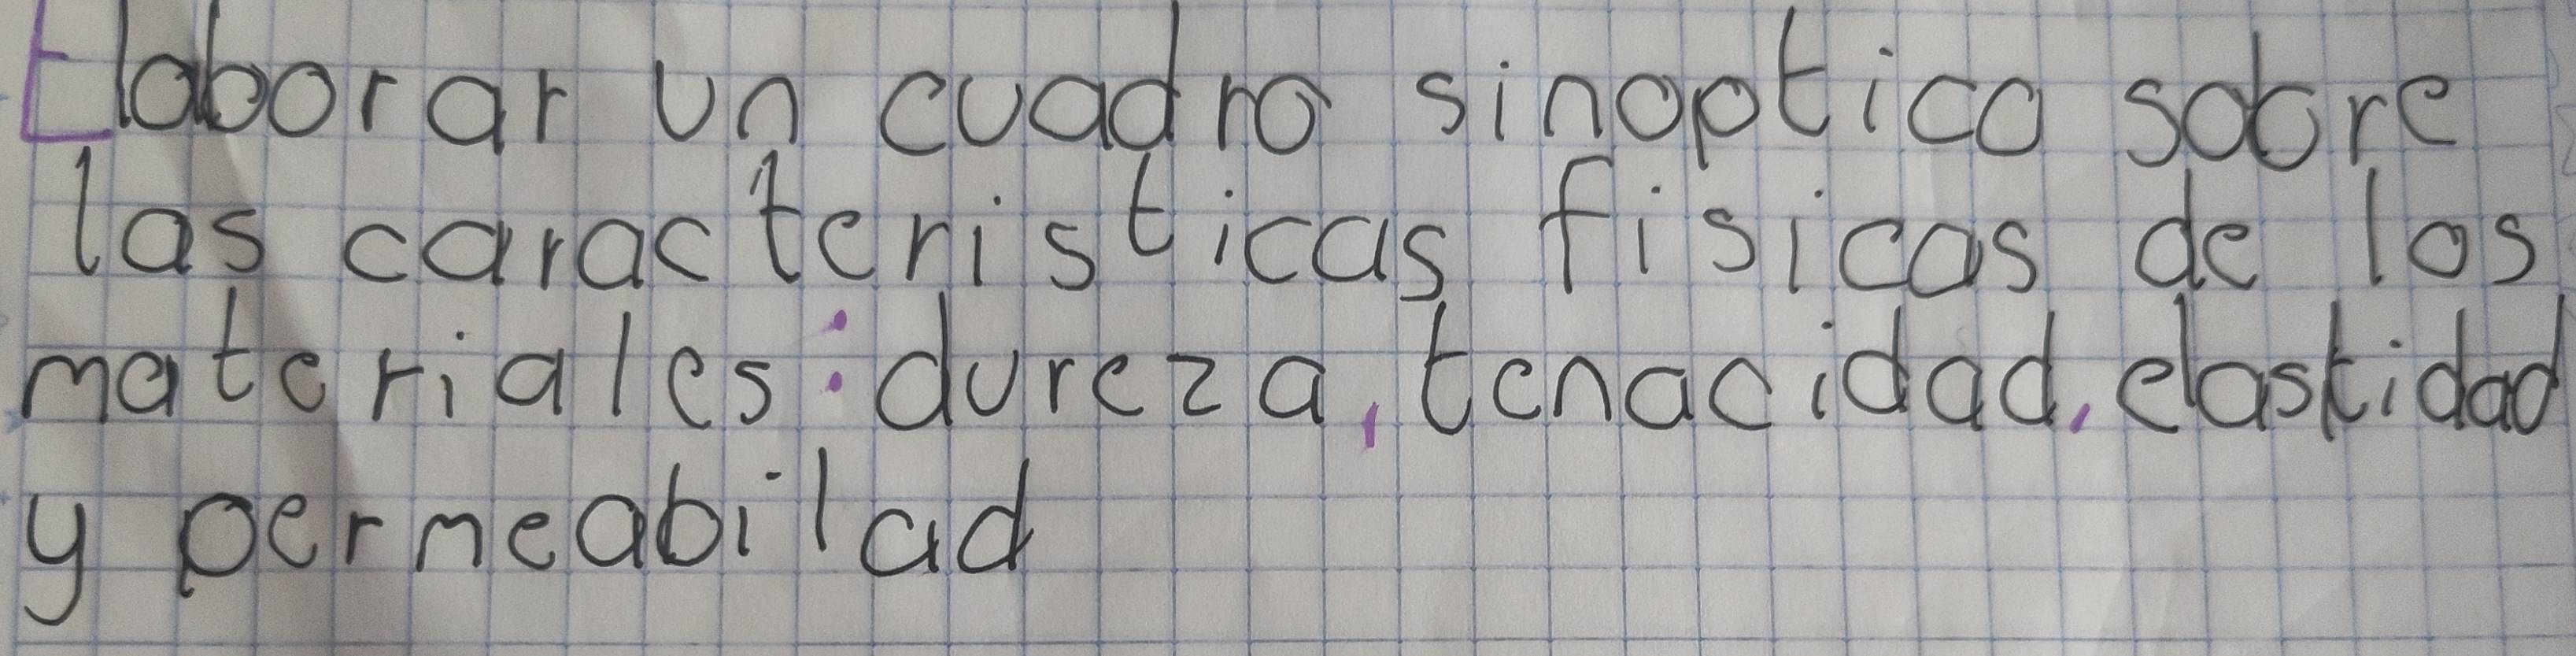 Elaborar un cuadro sinoptico sobre
las caracteristicas fisicas de los
materiales: dureza, tenacidad, elastidad
y permeabilad